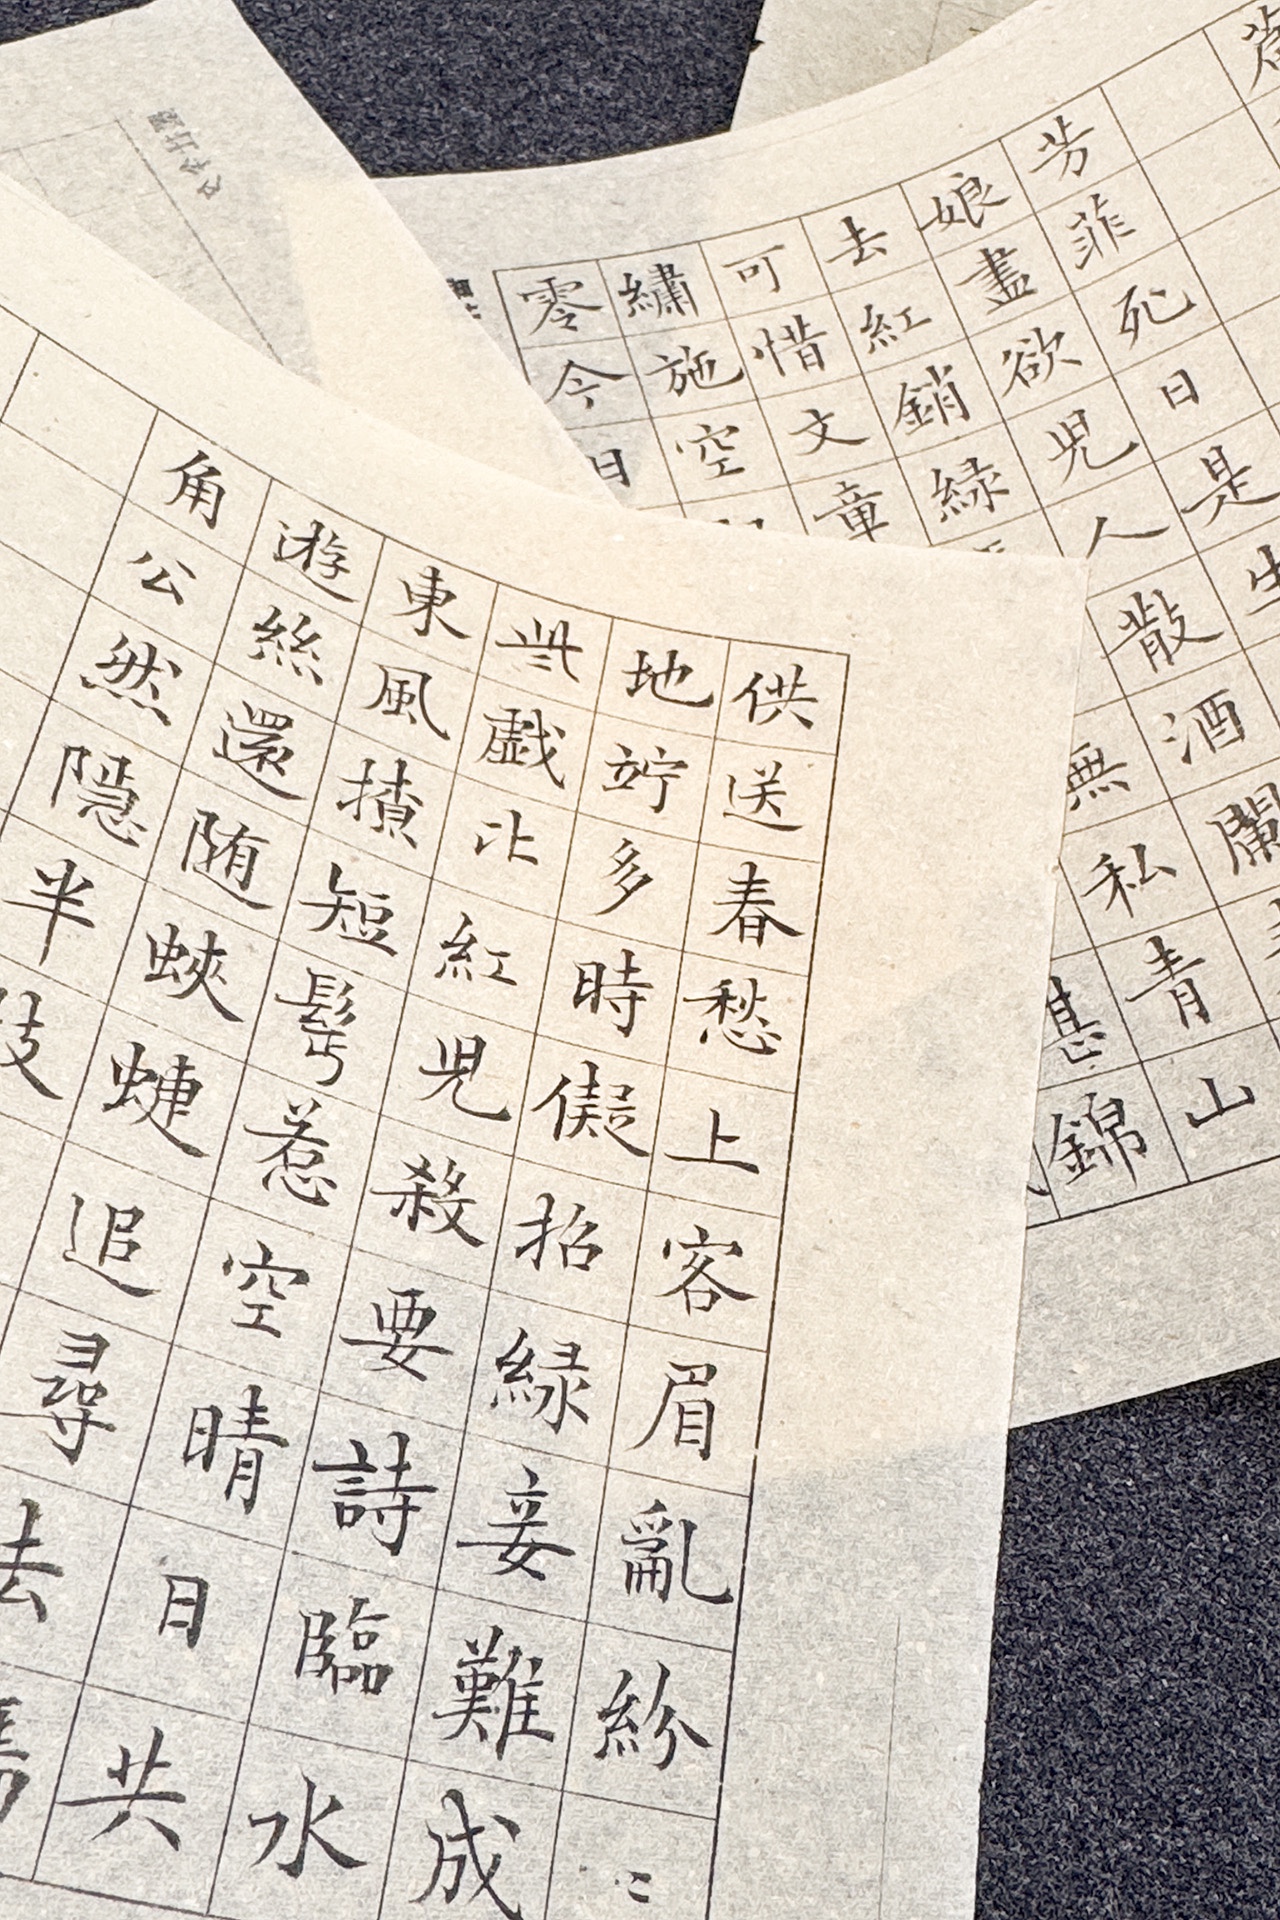 芳菲死日是生
娘盡欲兒人散酒闌
去紅銷綠
無私青山
可惜文章
堪錦
繡施空
零今日
供送春愁上客眉亂紛〻
地竚多時儗招綠妾難成
些戲比紅兒殺要詩臨水
東風短髩惹空晴日共
遊絲還随蛺蜨追尋去
角公然隱半枝